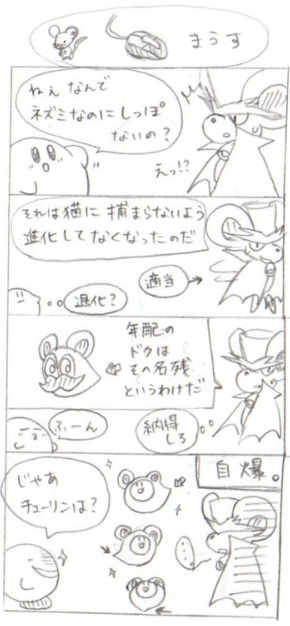 まうす
ねぇ なんで
ネズミなのにしっぽ
ないの？
えっ!?
それは猫に 捕まらないよう
進化してなくなったのだ
適当
進化？
年配の
ドクは
その名残
というわけだ
ふーん
納得
しろ
じゃあ
チューリンは？
自爆。
…